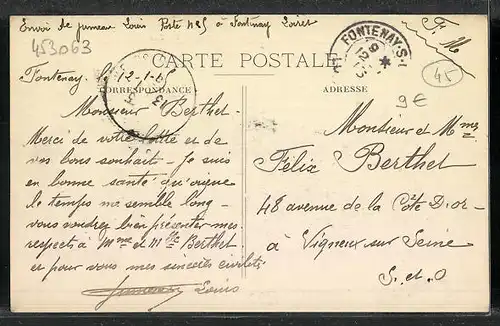 Envoi de Jumeau Louis Poste N 25 à Fontenay Loiret
453063
F. M
CARTE POSTALE
FONTENAY-S-L
45
9€
Fontenay le 12-1-15
CORRESPONDANCE
ADRESSE
Monsieur Berthet
Merci de votre lettre et de
vos bons souhaits - Je suis
en bonne santé quoique
le temps me semble long -
vous voudrez bien présenter mes
respects à Mme et Mlle Berthet
et pour vous mes sincères civilités
Louis
Monsieur et Mme
Félix Berthet
48 avenue de la Côte D'or -
à Vigneux sur Seine
S. et. O